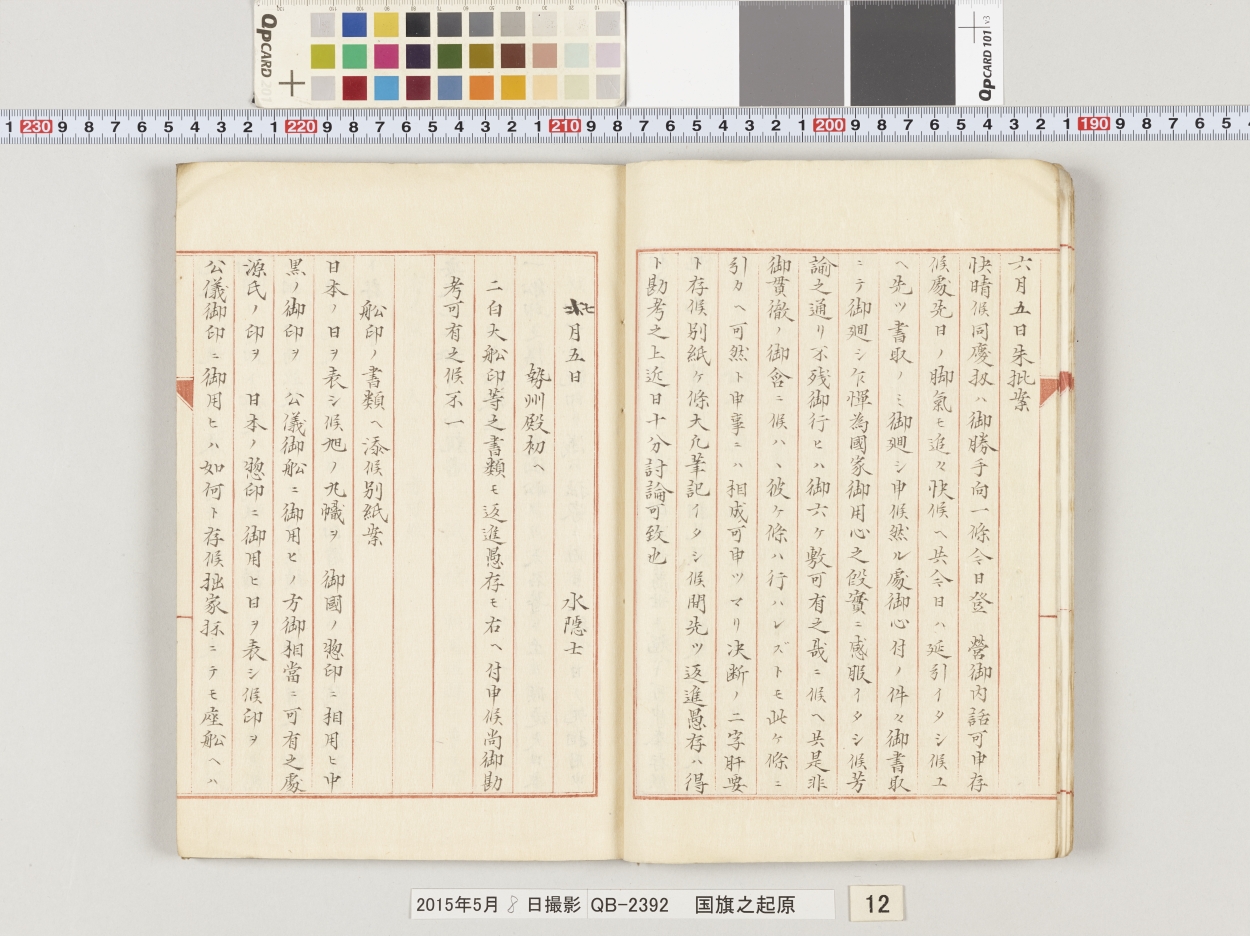 六月五日朱批案
快晴候同慶扨ハ御勝手向一條今日登　營御内話可申存
候處先日ノ脚氣モ追々快候ヘ共今日ハ延引イタシ候ユ
ヘ先ツ書取ノミ御廻シ申候然ル處御心付ノ件々御書取
ニテ御廻シ乍憚為國家御用心之段實ニ感服イタシ候芳
論之通リ不残御行ヒハ御六ケ敷可有之哉ニ候ヘ共是非
御貫徹ノ御含ニ候ハヽ彼ケ條ハ行ハレズトモ此ケ條ニ
引カヘ可然ト申事ニハ相成可申ツマリ決断ノ二字肝要
ト存候別紙ケ條大凡筆記イタシ候間先ツ返進愚存ハ得
ト勘考之上近日十分討論可致也
月五日　水隠士
勢州殿初ヘ
二白大舩印等之書類モ返進愚存モ右ヘ付申候尚御勘
考可有之候不一
舩印ノ書類ヘ添候別紙案
日本ノ日ヲ表シ候旭ノ丸幟ヲ　御國ノ惣印ニ相用ヒ中
黒ノ御印ヲ　公儀御舩ニ御用ヒノ方御相當ニ可有之處
源氏ノ印ヲ　日本ノ惣印ニ御用ヒ日ヲ表シ候印ヲ
公儀御印ニ御用ヒハ如何ト存候拙家抔ニテモ座舩ヘハ
Qp CARD 201
Qp CARD 101 v3
1 230 9 8 7 6 5 4 3 2 1 220 9 8 7 6 5 4 3 2 1 210 9 8 7 6 5 4 3 2 1 200 9 8 7 6 5 4 3 2 1 190 9 8 7 6 5
2015年5月 8 日撮影 QB-2392 国旗之起原
12